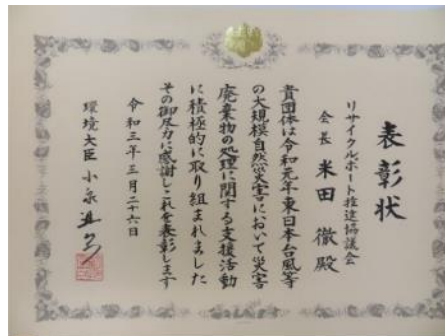 表彰状
リサイクルポート推進協議会
会長 米田 徹 殿
貴団体は令和元年東日本台風等
の大規模自然災害において災害
廃棄物の処理に関する支援活動
に積極的に取り組まれました
その御尽力に感謝しこれを表彰します
令和三年三月二十六日
環境大臣 小泉進次郎